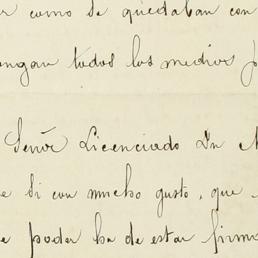 como se quedaban con
ongan todos los medios p
Señor Licenciado Dn
e si con mucho gusto, que
e poder ha de estar firm